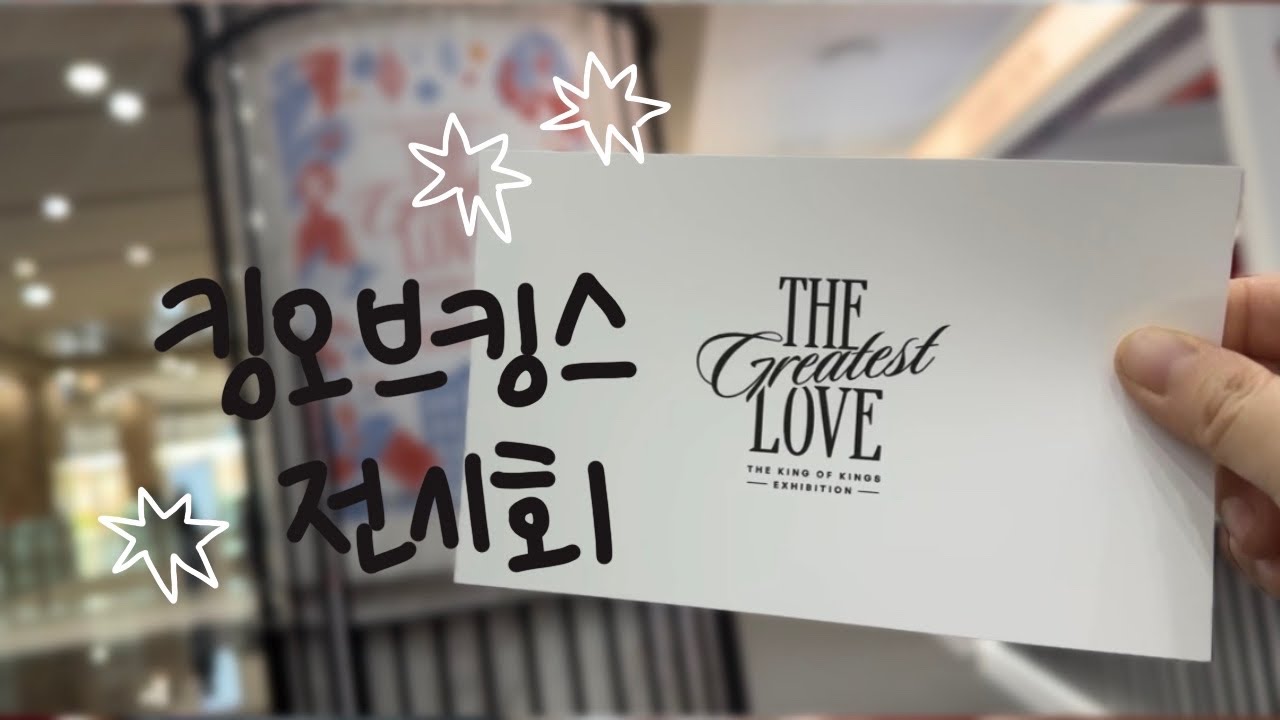 킹오브킹스
전시회
THE
Greatest
LOVE
THE KING OF KINGS
EXHIBITION